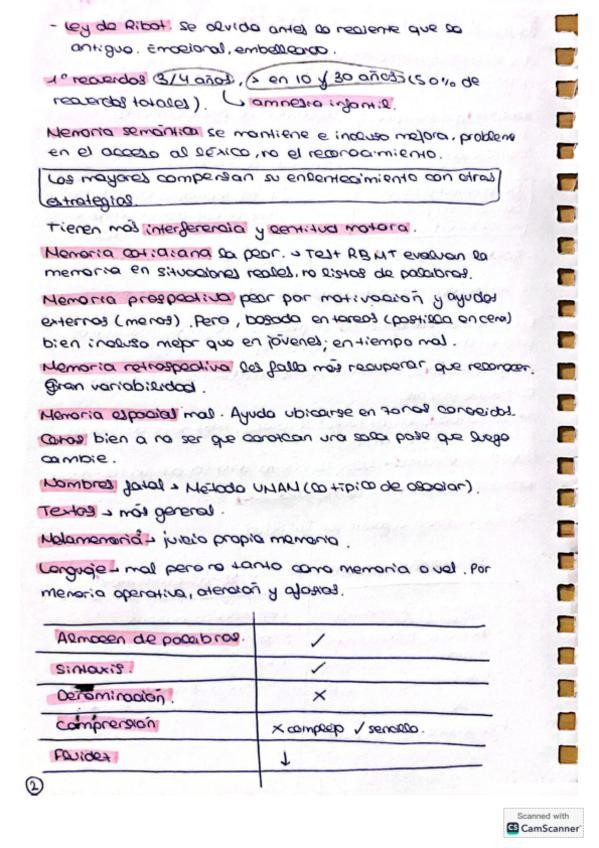 - Ley de Ribot. Se olvida antes lo reciente que lo
antiguo. Emocional, embellecido.
1º recuerdos (3/4 años), > en 10 y 30 años (50% de
recuerdos totales). ↳ amnesia infantil.
Memoria semántica se mantiene e incluso mejora, problema
en el acceso al léxico, no el reconocimiento.
Los mayores compensan su enlentecimiento con otras
estrategias.
Tienen más interferencia y lentitud motora.
Memoria cotidiana la peor. → Test RBMT evaluan la
memoria en situaciones reales, no listas de palabras.
Memoria prospectiva peor por motivación y ayudas
externas (menos). Pero, basada en tareas (pastilla en cena)
bien incluso mejor que en jóvenes; en tiempo mal.
Memoria retrospectiva les falla más recuperar, que reconocer.
Gran variabilidad.
Memoria espacial mal. Ayuda ubicarse en zonas conocidas.
Caras bien a no ser que conozcan una sola pose que luego
cambie.
Nombres fatal → Método UNAN (lo típico de asociar).
Textos → más general.
Metamemoria → juicio propia memoria.
Lenguaje → mal pero no tanto como memoria o vel. Por
memoria operativa, atención y afasias.
Almacen de palabras. ✓
Sintaxis. ✓
Denominación. ×
Comprensión × complejo ✓ sencillo.
Fluidez ↓
2
Scanned with
CS CamScanner